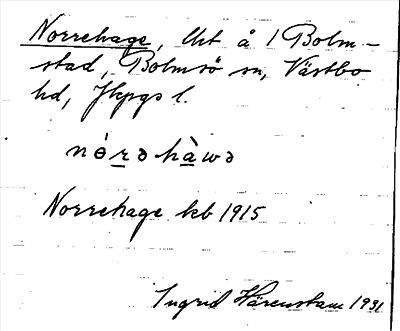 Norrehage, lht å 1 Bolm-
stad, Bolmsö sn, Västbo
hd, Jkpgs l.
nòrǝhàwǝ
Norrehage kb 1915
Ingrid Härenstam 1931